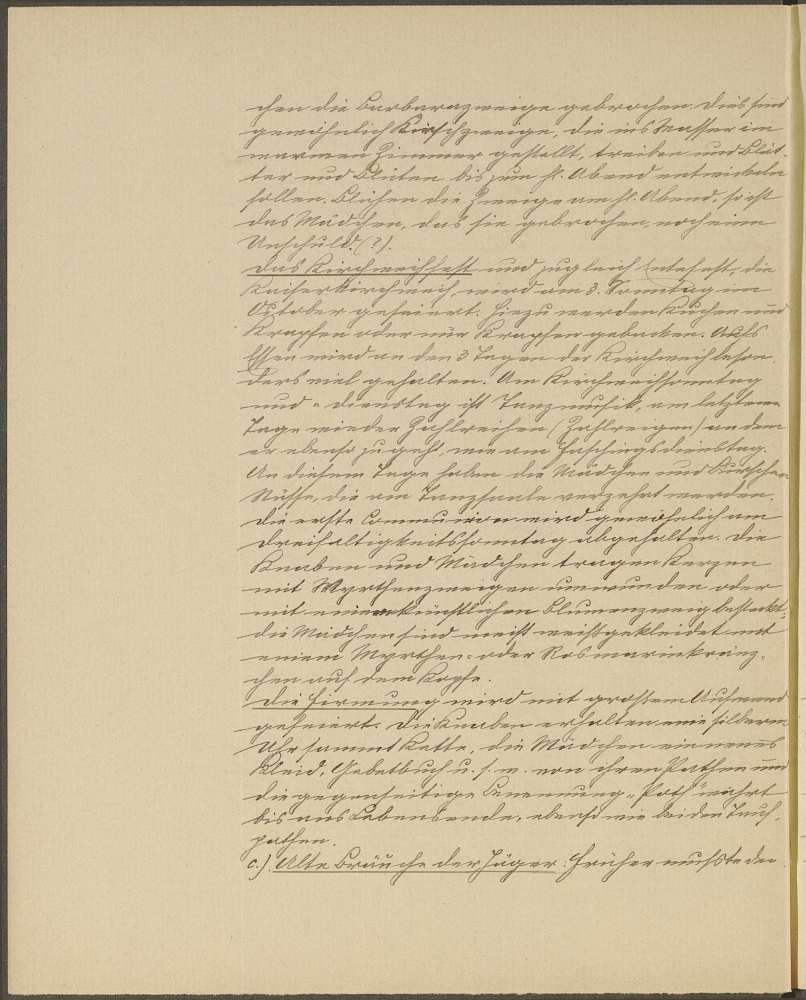 chen die Barbarazweige gebrochen. Dies sind
gewöhnlich Kirschzweige, die ins Wasser im
warmen Zimmer gestellt, treiben und Blät-
ter und Blüten bis zum hl. Abend entwickeln
sollen. Blühen die Zweige am hl. Abend, so ist
das Mädchen, das sie gebrochen, noch eine
Unschuld. (?).
Das Kirchweihfest und zugleich Erntefest, die
Kaiserkirchweih, wird am 3. Sonntag im
October gefeiert. Hiezu werden Kuchen und
Krapfen oder nur Krapfen gebacken. Aufs
Essen wird an den 3 Tagen der Kirchweih beson-
ders viel gehalten. Am Kirchweihsonntag
und = dienstag ist Tanzmusik, am letzteren
Tage wieder Zahlreihen (Zahlreigen) an dem
er ebenso zugeht, wie am Faschingsdienstag.
An diesem Tage haben die Mädchen und Burschen
Nüsse, die am Tanzsaale verzehrt werden.
Die erste Communion wird gewöhnlich am
Dreifaltigkeitssonntag abgehalten. Die
Knaben und Mädchen tragen Kerzen
mit Myrthenzweigen umwunden oder
mit einem künstlichen Blumenzweig besteckt;
die Mädchen sind meist weißgekleidet mit
einem Myrthen= oder Rosmarinkränz-
chen auf dem Kopfe.
Die Firmung wird mit großem Aufwand
gefeiert. Die Knaben erhalten eine silberne
Uhr sammt Kette, die Mädchen ein neues
Kleid, Gebetbuch u. s. w. von ihren Pathen und
die gegenseitige Benennung „Path" währt
bis ans Lebensende, ebenso wie bei den Tauf-
pathen.
c.) Alte Bräuche der Jäger: Früher mußte der